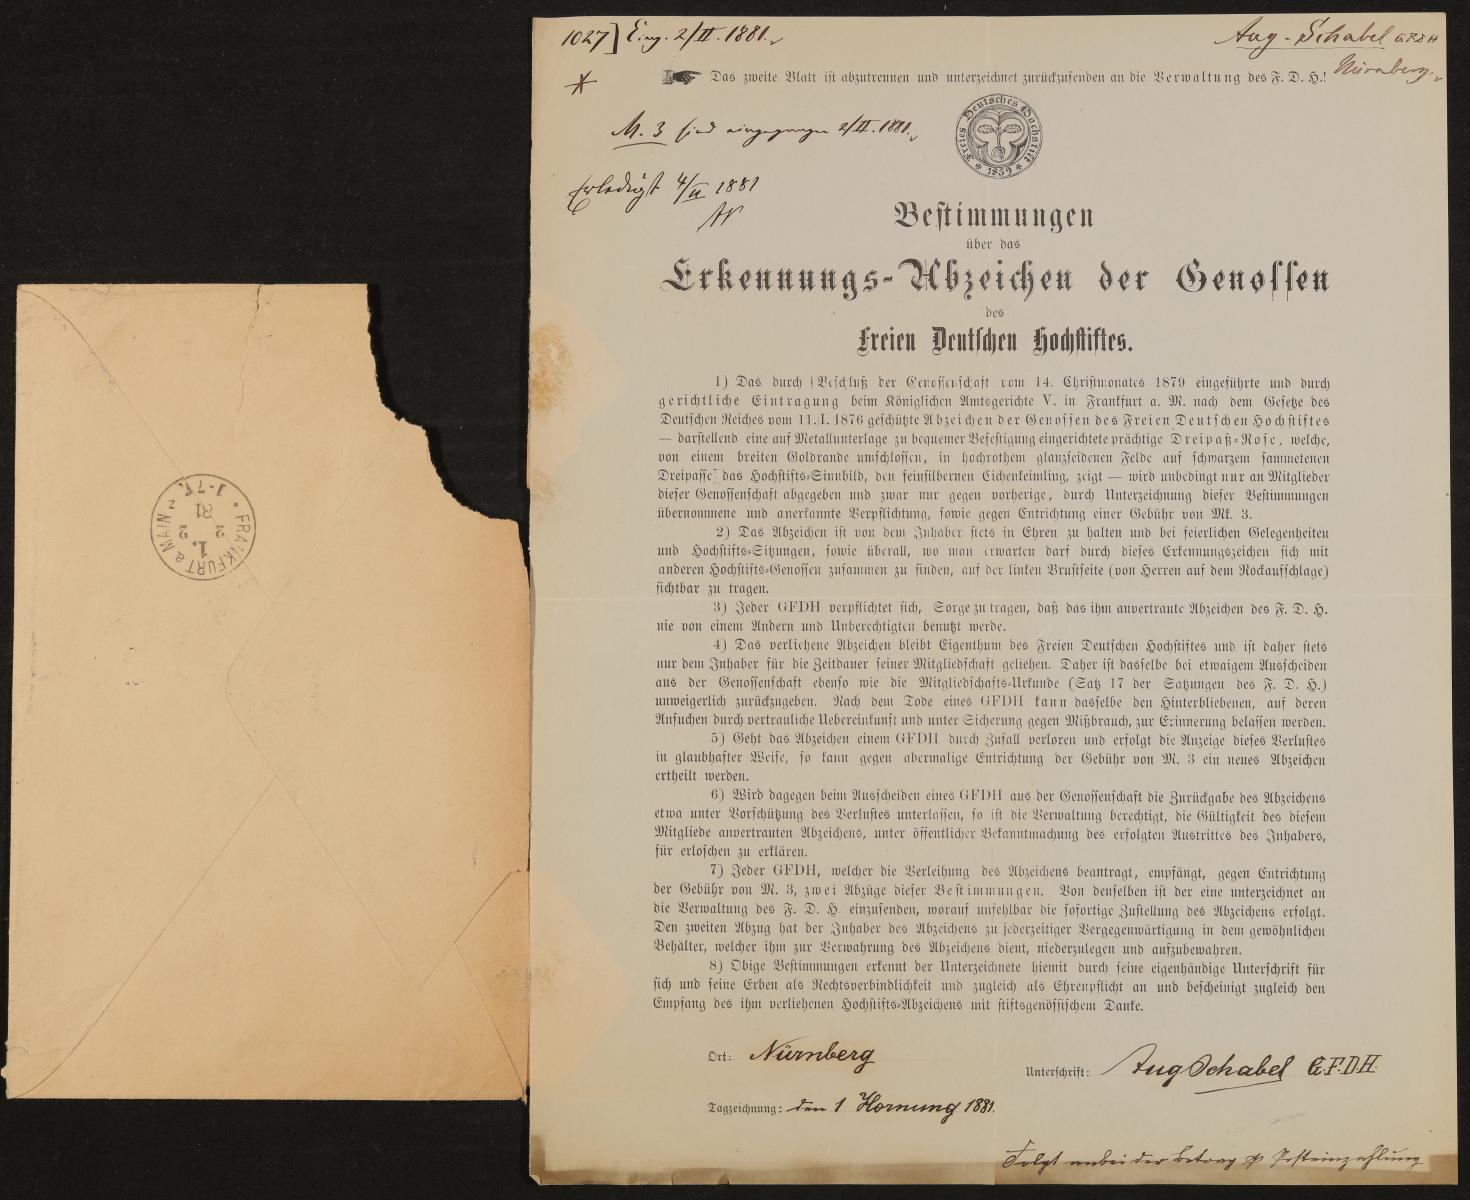 1027] Eing. 2/II. 1881.
Aug. Schabel GFDH
Nürnberg.
Das zweite Blatt ist abzutrennen und unterzeichnet zurückzusenden an die Verwaltung des F. D. H.!
Freies Deutsches Hochstift
* 1859 *
M. 3 sind eingegangen 2/II. 1881.
Erledigt 4/II 1881
Bestimmungen
über das
Erkennungs-Abzeichen der Genossen
des
Freien Deutschen Hochstiftes.
1) Das durch Beschluß der Genossenschaft vom 14. Christmonates 1879 eingeführte und durch
gerichtliche Eintragung beim Königlichen Amtsgerichte V. in Frankfurt a. M. nach dem Gesetze des
Deutschen Reiches vom 11./I. 1876 geschützte Abzeichen der Genossen des Freien Deutschen Hochstiftes
— darstellend eine auf Metallunterlage zu bequemer Befestigung eingerichtete prächtige Dreipaß-Rose, welche,
von einem breiten Goldrande umschlossen, in hochrothem glanzseidenen Felde auf schwarzem sammetenen
Dreipasse das Hochstifts-Sinnbild, den feinsilbernen Eichenkeimling, zeigt — wird unbedingt nur an Mitglieder
dieser Genossenschaft abgegeben und zwar nur gegen vorherige, durch Unterzeichnung dieser Bestimmungen
übernommene und anerkannte Verpflichtung, sowie gegen Entrichtung einer Gebühr von Mk. 3.
2) Das Abzeichen ist von dem Inhaber stets in Ehren zu halten und bei feierlichen Gelegenheiten
und Hochstifts-Sitzungen, sowie überall, wo man erwarten darf durch dieses Erkennungszeichen sich mit
anderen Hochstifts-Genossen zusammen zu finden, auf der linken Brustseite (von Herren auf dem Rockaufschlage)
sichtbar zu tragen.
3) Jeder GFDH verpflichtet sich, Sorge zu tragen, daß das ihm anvertraute Abzeichen des F. D. H.
nie von einem Andern und Unberechtigten benutzt werde.
4) Das verliehene Abzeichen bleibt Eigenthum des Freien Deutschen Hochstiftes und ist daher stets
nur dem Inhaber für die Zeitdauer seiner Mitgliedschaft geliehen. Daher ist dasselbe bei etwaigem Ausscheiden
aus der Genossenschaft ebenso wie die Mitgliedschafts-Urkunde (Satz 17 der Satzungen des F. D. H.)
unweigerlich zurückzugeben. Nach dem Tode eines GFDH kann dasselbe den Hinterbliebenen, auf deren
Ansuchen durch vertrauliche Uebereinkunft und unter Sicherung gegen Mißbrauch, zur Erinnerung belassen werden.
5) Geht das Abzeichen einem GFDH durch Zufall verloren und erfolgt die Anzeige dieses Verlustes
in glaubhafter Weise, so kann gegen abermalige Entrichtung der Gebühr von M. 3 ein neues Abzeichen
ertheilt werden.
6) Wird dagegen beim Ausscheiden eines GFDH aus der Genossenschaft die Zurückgabe des Abzeichens
etwa unter Vorschützung des Verlustes unterlassen, so ist die Verwaltung berechtigt, die Gültigkeit des diesem
Mitgliede anvertrauten Abzeichens, unter öffentlicher Bekanntmachung des erfolgten Austrittes des Inhabers,
für erloschen zu erklären.
7) Jeder GFDH, welcher die Verleihung des Abzeichens beantragt, empfängt, gegen Entrichtung
der Gebühr von M. 3, zwei Abzüge dieser Bestimmungen. Von denselben ist der eine unterzeichnet an
die Verwaltung des F. D. H. einzusenden, worauf unfehlbar die sofortige Zustellung des Abzeichens erfolgt.
Den zweiten Abzug hat der Inhaber des Abzeichens zu jederzeitiger Vergegenwärtigung in dem gewöhnlichen
Behälter, welcher ihm zur Verwahrung des Abzeichens dient, niederzulegen und aufzubewahren.
8) Obige Bestimmungen erkennt der Unterzeichnete hiemit durch seine eigenhändige Unterschrift für
sich und seine Erben als Rechtsverbindlichkeit und zugleich als Ehrenpflicht an und bescheinigt zugleich den
Empfang des ihm verliehenen Hochstifts-Abzeichens mit stiftsgenössischem Danke.
Ort: Nürnberg
Unterschrift: Aug Schabel G.F.D.H.
Tagzeichnung: den 1 Hornung 1881.
Folgt anbei der Betrag p Posteinzahlung
* FRANKFURT a. MAIN *
1.
2 2
81